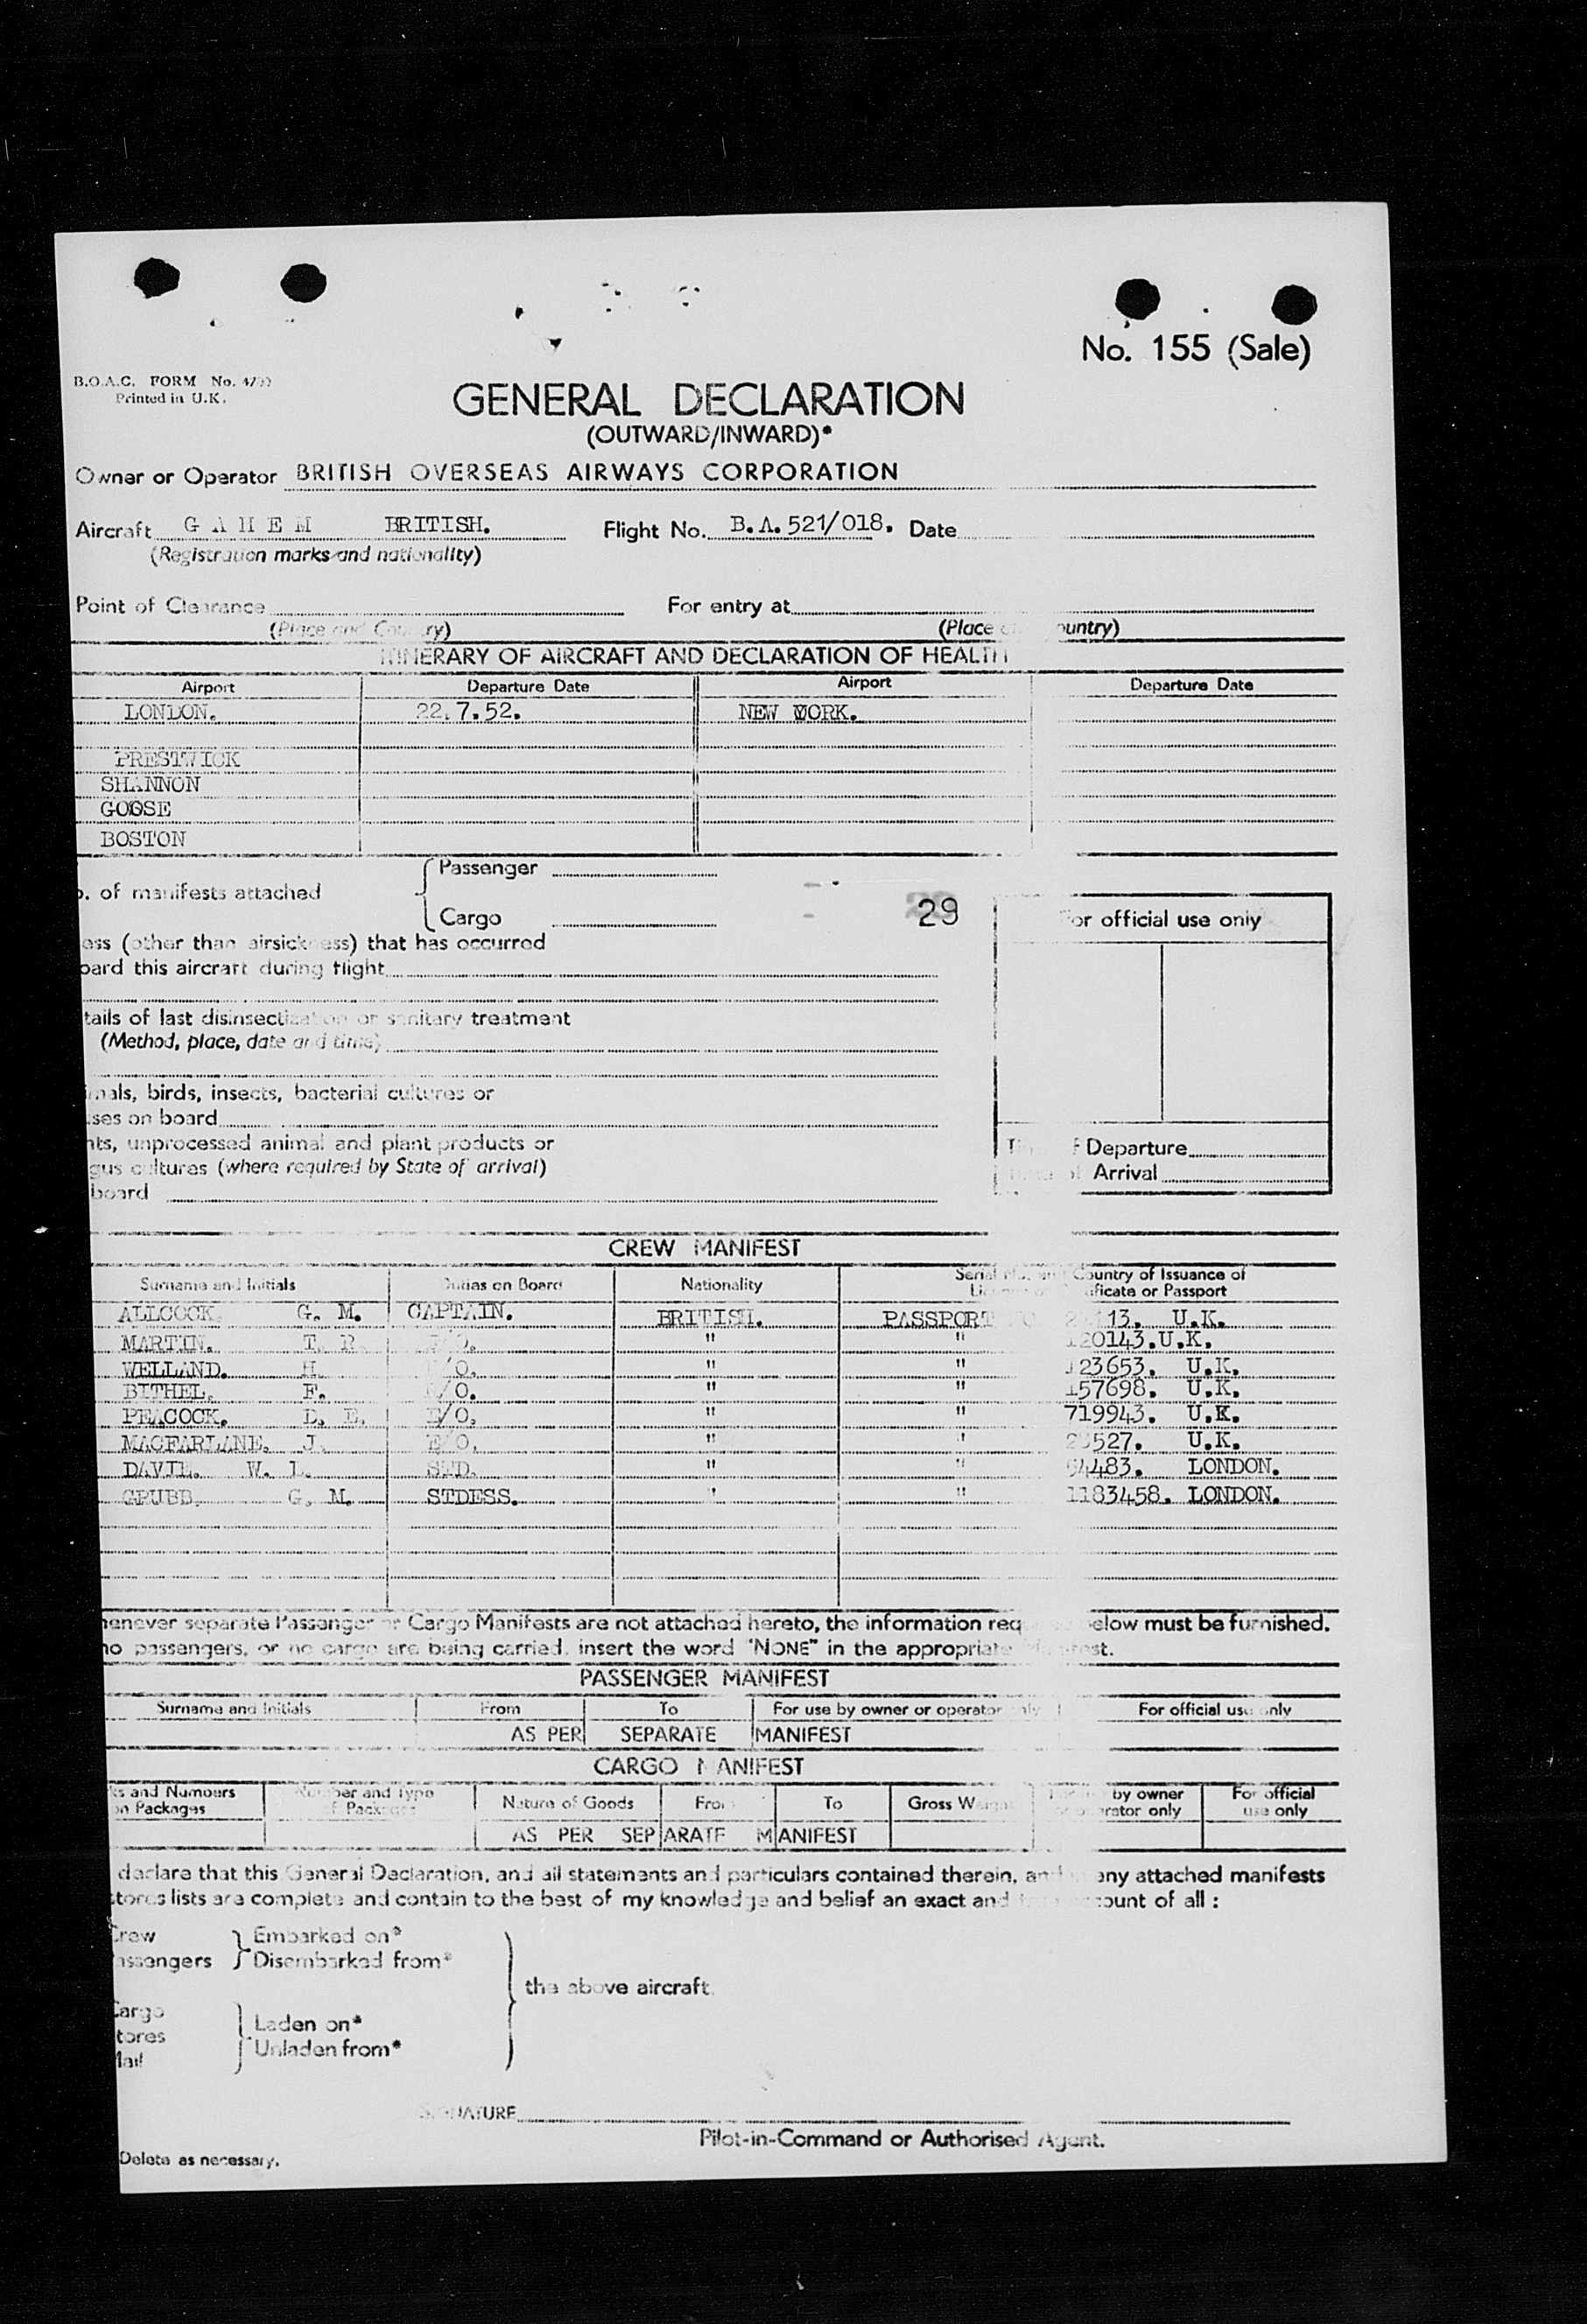 No. 155 (Sale)
B.O.A.C. FORM No.
Printed in U.K.
GENERAL DECLARATION
(OUTWARD/INWARD)*
Owner or Operator BRITISH OVERSEAS AIRWAYS CORPORATION
Aircraft G A H E M BRITISH. Flight No. B.A. 521/018. Date
(Registration marks and nationality)
Point of Clearance For entry at
(Place and Country) (Place ountry)
ITINERARY OF AIRCRAFT AND DECLARATION OF HEALTH
Airport Departure Date Airport Departure Date
LONDON. 22.7.52. NEW YORK.
PRESTWICK
SHANNON
GOOSE
BOSTON
Passenger
. of manifests attached
Cargo 29 or official use only
ess (other than airsickness) that has occurred
oard this aircraft during flight
tails of last disinsectization or sanitary treatment
(Method, place, date and time)
imals, birds, insects, bacterial cultures or
ses on board
nts, unprocessed animal and plant products or Departure
gus cultures (where required by State of arrival) Arrival
board
CREW MANIFEST
Surname and Initials Duties on Board Nationality Serial Country of Issuance of
ificate or Passport
ALLCOCK. G. M. CAPTAIN. BRITISH. PASSPORT 13. U.K.
MARTIN. T. R. /O. " " 120143.U.K.
WELLAND. H. /O. " " 123653. U.K.
BITHEL. F. /O. " " 157698. U.K.
PEACOCK. D. E. E/O. " " 719943. U.K.
MACFARLANE. J. E/O. " " 527. U.K.
DAVIE. W. L. STD. " " 4483. LONDON.
GRUBB. G. M. STDESS. " " 1183458. LONDON.
henever separate Passenger or Cargo Manifests are not attached hereto, the information req elow must be furnished.
no passengers, or no cargo are being carried, insert the word "NONE" in the appropriate
PASSENGER MANIFEST
Surname and Initials From To For use by owner or operator only For official use only
AS PER SEPARATE MANIFEST
CARGO MANIFEST
ks and Numbers Number and Type Nature of Goods From To Gross Weight by owner For official
on Packages of Packages rator only use only
AS PER SEPARATE MANIFEST
declare that this General Declaration, and all statements and particulars contained therein, and any attached manifests
stores lists are complete and contain to the best of my knowledge and belief an exact and ount of all :
Crew Embarked on*
assengers Disembarked from*
the above aircraft.
Cargo
Laden on*
tores
Unladen from*
Mail
SIGNATURE
Pilot-in-Command or Authorised Agent.
Delete as necessary.